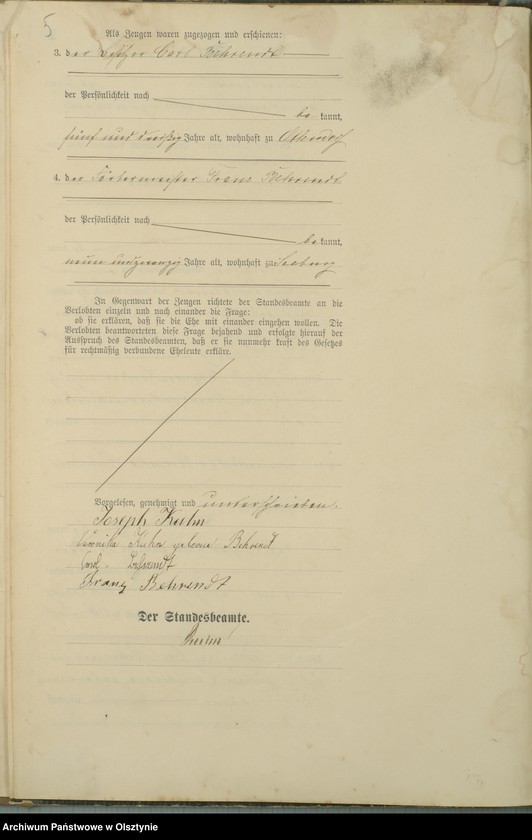 5
Als Zeugen waren zugezogen und erschienen:
3. der Besitzer Carl Behrendt
der Persönlichkeit nach
be kannt,
fünf und dreißig Jahre alt, wohnhaft zu
4. der Franz Behrendt
der Persönlichkeit nach
be kannt,
neun und zwanzig Jahre alt, wohnhaft zu Seeburg
In Gegenwart der Zeugen richtete der Standesbeamte an die
Verlobten einzeln und nach einander die Frage:
ob sie erklären, daß sie die Ehe mit einander eingehen wollen. Die
Verlobten beantworteten diese Frage bejahend und erfolgte hierauf der
Ausspruch des Standesbeamten, daß er sie nunmehr kraft des Gesetzes
für rechtmäßig verbundene Eheleute erkläre.
Vorgelesen, genehmigt und unterschrieben.
Joseph Kuhn
Veronika Kuhn geborene Behrendt
Carl Behrendt
Franz Behrendt
Der Standesbeamte.
Archiwum Państwowe w Olsztynie